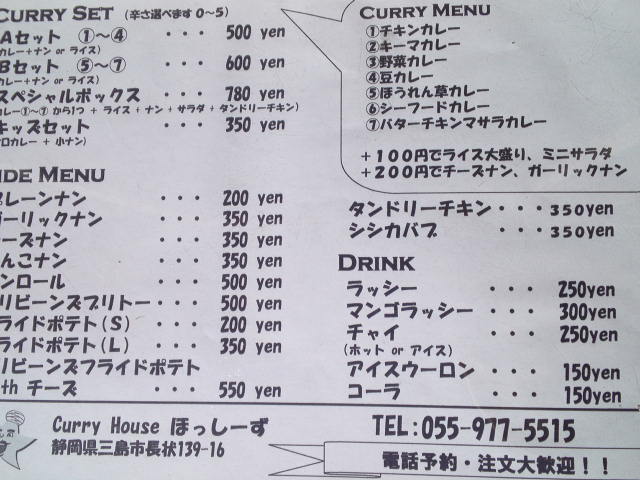 CURRY SET (辛さ選べます 0〜5)
Aセット ①〜④ ・・・ 500 yen
カレー+ナン or ライス)
Bセット ⑤〜⑦ ・・・ 600 yen
カレー+ナン or ライス)
スペシャルボックス ・・・ 780 yen
カレー①〜⑦ から1つ + ライス + ナン + サラダ + タンドリーチキン)
キッズセット ・・・ 350 yen
カレー + 小ナン)
IDE MENU
プレーンナン ・・・ 200 yen
ガーリックナン ・・・ 350 yen
ーズナン ・・・ 350 yen
んこナン ・・・ 350 yen
ンロール ・・・ 500 yen
リビーンズブリトー・・・ 500 yen
ライドポテト(S) ・・・ 200 yen
ライドポテト(L) ・・・ 350 yen
リビーンズフライドポテト
th チーズ ・・・ 550 yen
CURRY MENU
①チキンカレー
②キーマカレー
③野菜カレー
④豆カレー
⑤ほうれん草カレー
⑥シーフードカレー
⑦バターチキンマサラカレー
+100円でライス大盛り、ミニサラダ
+200円でチーズナン、ガーリックナン
タンドリーチキン・・・350yen
シシカバブ ・・・350yen
DRINK
ラッシー ・・・ 250yen
マンゴラッシー ・・・ 300yen
チャイ ・・・ 250yen
(ホット or アイス)
アイスウーロン ・・・ 150yen
コーラ ・・・ 150yen
Curry House ほっしーず
静岡県三島市長伏139-16
TEL:055-977-5515
電話予約・注文大歓迎!!